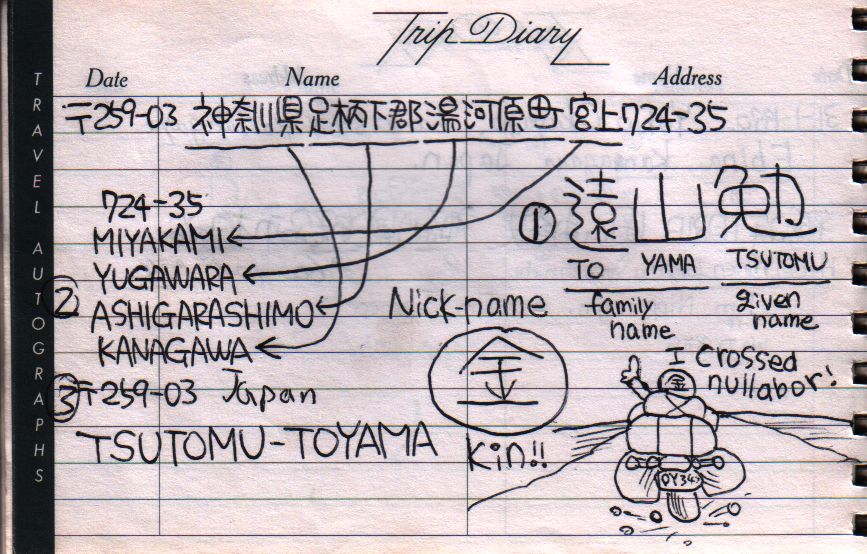 Trip Diary
Date Name Address
TRAVEL AUTOGRAPHS
〒259-03 神奈川県足柄下郡湯河原町宮上724-35
① 遠山勉
TO YAMA TSUTOMU
family name given name
724-35
MIYAKAMI
YUGAWARA
② ASHIGARASHIMO
KANAGAWA
③ 〒259-03 Japan
TSUTOMU-TOYAMA
Nick-name
金
Kin!!
I crossed
nullabor!
金